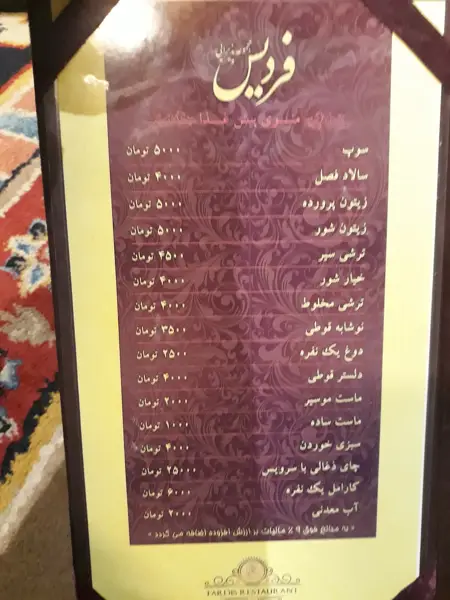 فردیس
منوی پیش غذا
سوپ ۵۰۰۰ تومان
سالاد فصل ۴۰۰۰ تومان
زیتون پرورده ۵۰۰۰ تومان
زیتون شور ۵۰۰۰ تومان
ترشی سیر ۴۵۰۰ تومان
خیار شور ۴۰۰۰ تومان
ترشی مخلوط ۴۰۰۰ تومان
نوشابه قوطی ۳۵۰۰ تومان
دوغ یک نفره ۲۵۰۰ تومان
دلستر قوطی ۴۰۰۰ تومان
ماست موسیر ۲۰۰۰ تومان
ماست ساده ۱۰۰۰ تومان
سبزی خوردن ۴۰۰۰ تومان
چای ذغالی با سرویس ۲۵۰۰۰ تومان
کارامل یک نفره ۶۰۰۰ تومان
آب معدنی ۲۰۰۰ تومان
« به مبالغ فوق ۹٪ مالیات بر ارزش افزوده اضافه می گردد »
FARDIS RESTAURANT